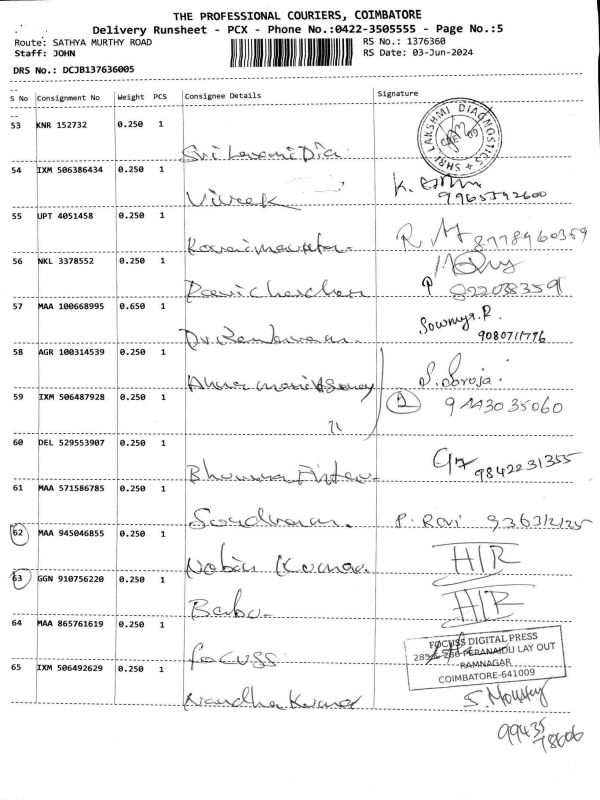 THE PROFESSIONAL COURIERS, COIMBATORE
Delivery Runsheet - PCX - Phone No.:0422-3505555 - Page No.:5
Route: SATHYA MURTHY ROAD RS No.: 1376360
Staff: JOHN RS Date: 03-Jun-2024
DRS No.: DCJB137636005
S No Consignment No Weight PCS Consignee Details Signature
53 KNR 152732 0.250 1
SHRI LAKSHMI DIAGNOSTICS
54 IXM 506386434 0.250 1
Vivek 9965392600
55 UPT 4051458 0.250 1
56 NKL 3378552 0.250 1
57 MAA 100668995 0.650 1 Sowmya.R
9080711776
58 AGR 100314539 0.250 1
S. Saroja.
59 IXM 506487928 0.250 1 2
60 DEL 529553907 0.250 1
9842231355
61 MAA 571586785 0.250 1
P. Ravi
62 MAA 945046855 0.250 1
Nobin Kumar HIR
63 GGN 910756220 0.250 1
Babu HIR
64 MAA 865761619 0.250 1
FOCUSS DIGITAL PRESS
PERANAIDU LAY OUT
focuss RAMNAGAR
65 IXM 506492629 0.250 1 COIMBATORE-641009
Nandha Kumar